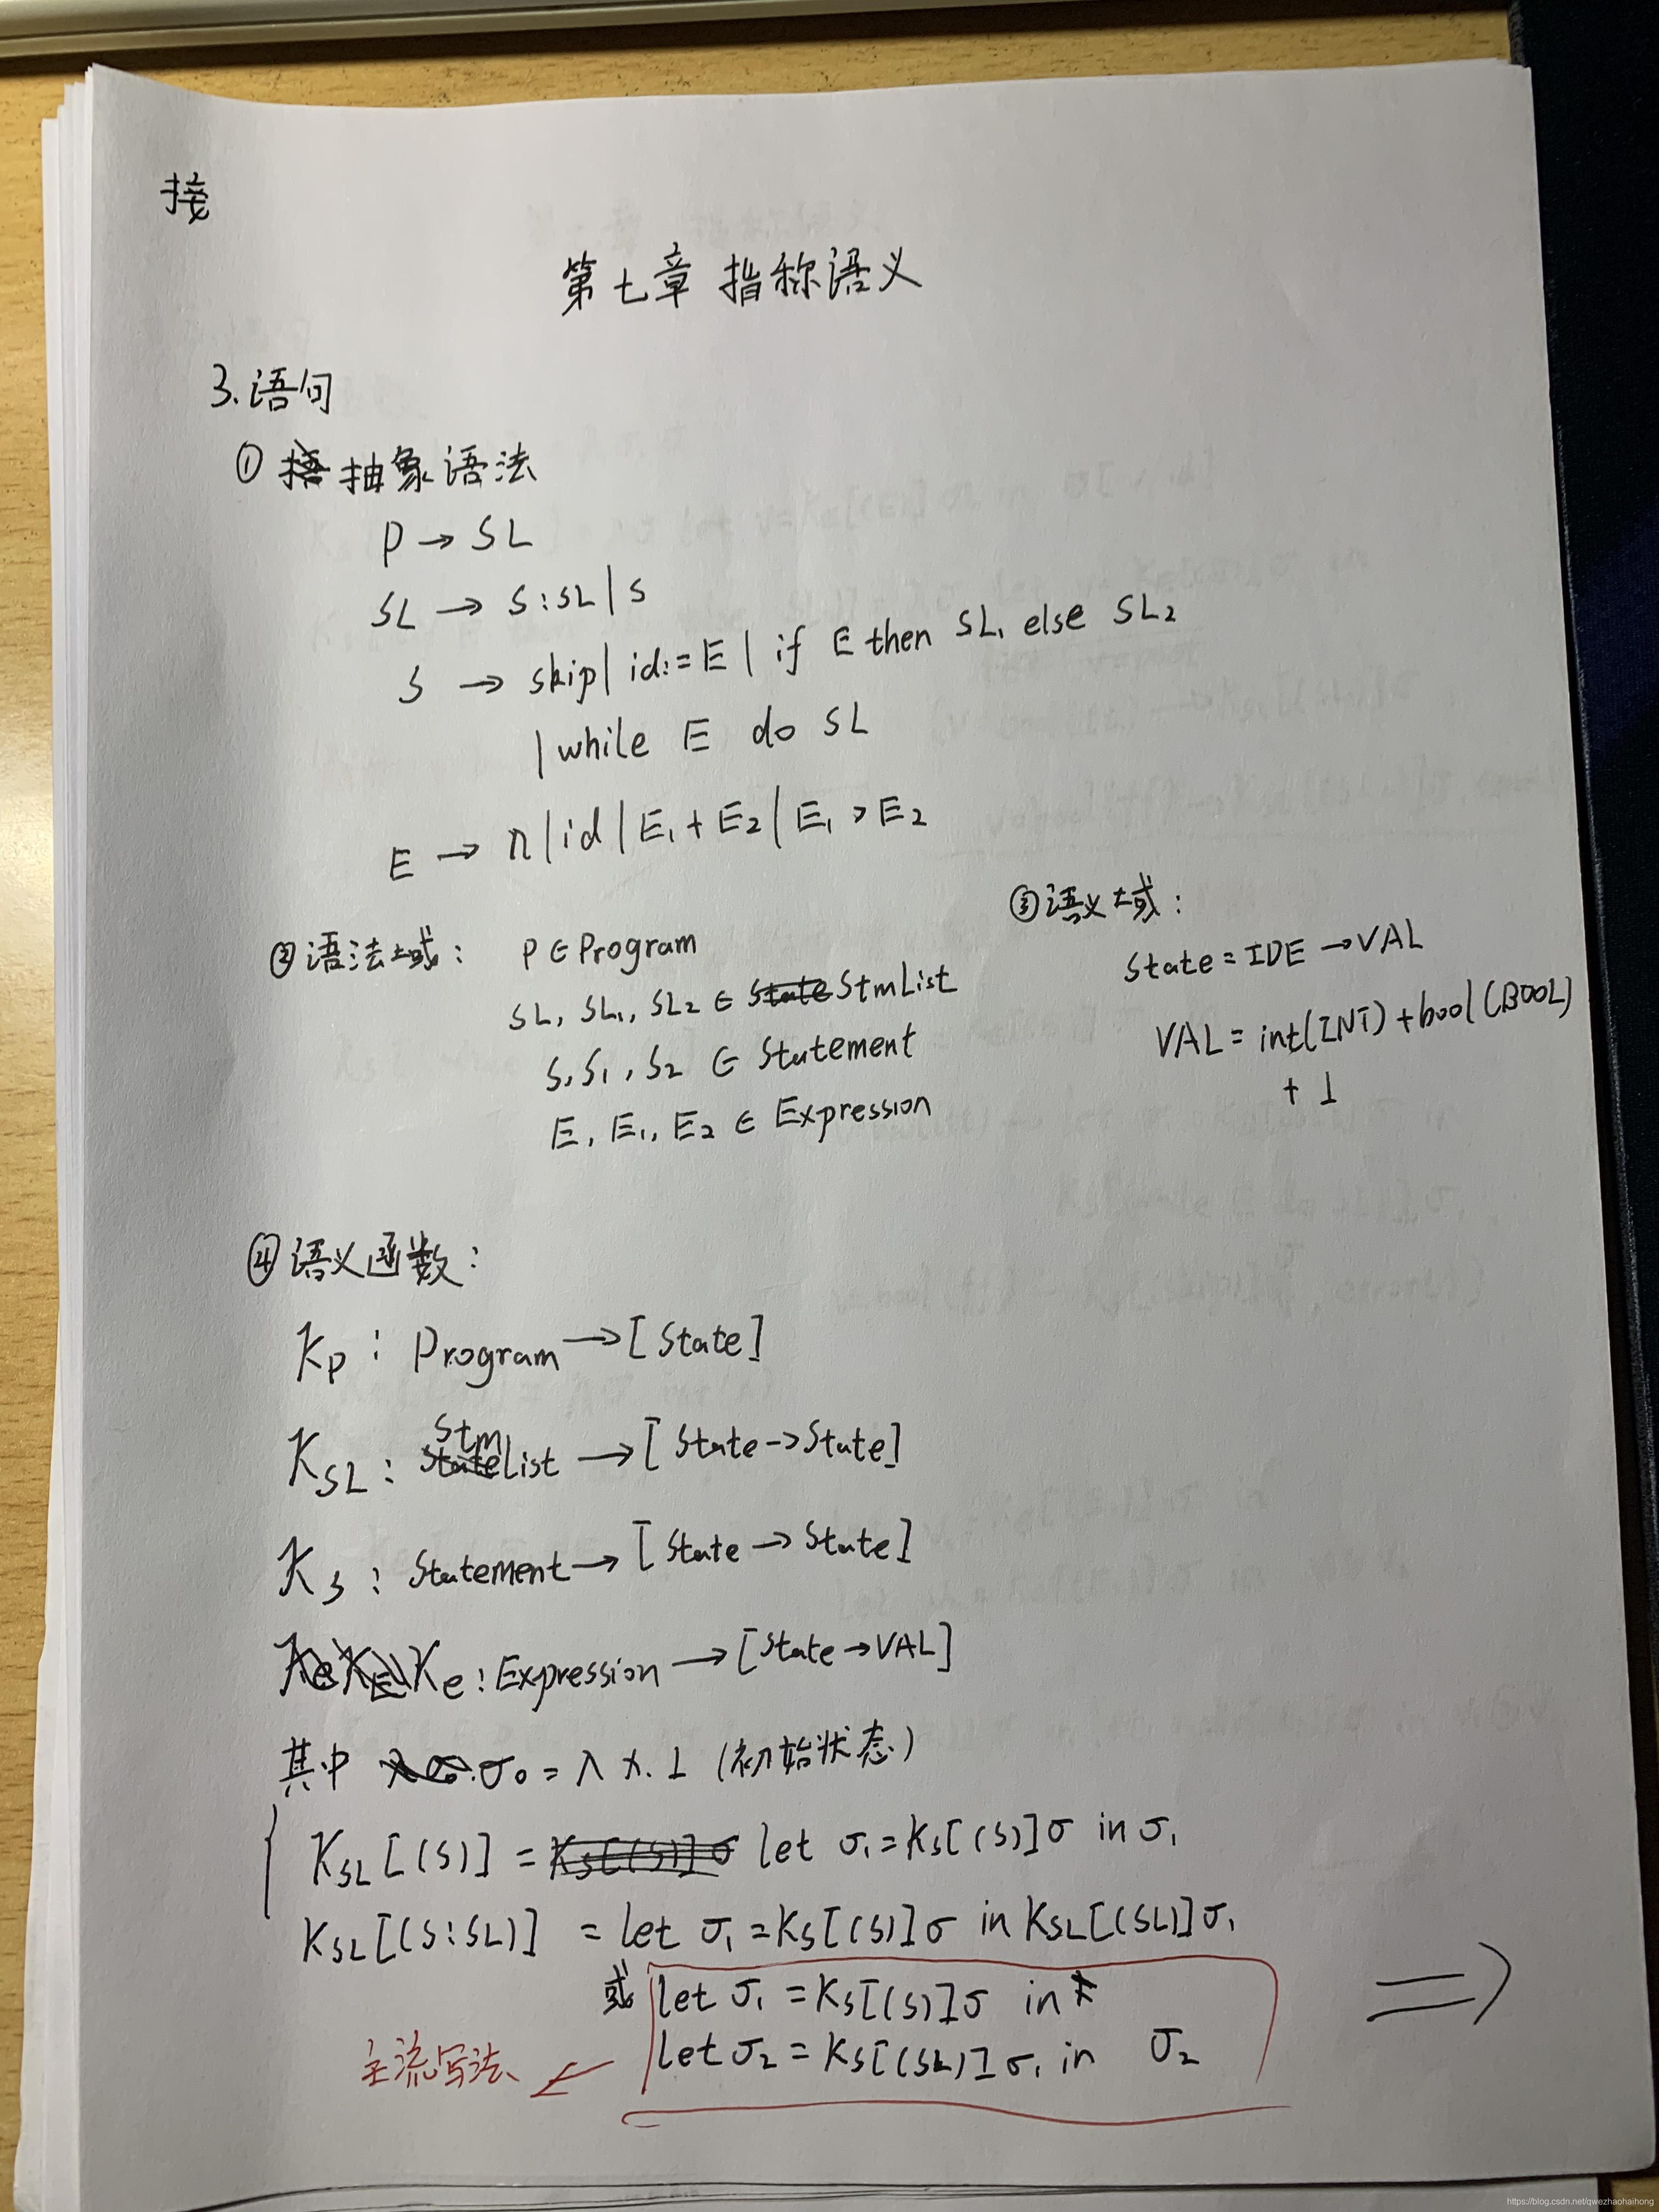 接
第七章 指称语义
3.语句
① 抽象语法
P → SL
SL → S:SL|S
S → skip| id:=E | if E then SL₁ else SL₂
| while E do SL
E → n|id|E₁+E₂|E₁>E₂
②语法域: P∈Program
SL, SL₁, SL₂ ∈ StmList
S, S₁, S₂ ∈ Statement
E, E₁, E₂ ∈ Expression
③语义域:
State = IDE → VAL
VAL = int(INT)+bool(BOOL)
+ ⊥
④语义函数:
Kp : Program → [State]
KSL : StmList → [State→State]
Ks : Statement → [State → State]
Ke : Expression → [State → VAL]
其中 σ₀ = λx.⊥ (初始状态)
KSL[(S)] = let σ₁=Ks[(S)]σ in σ₁
KSL[(S:SL)] = let σ₁=Ks[(S)]σ in KSL[(SL)]σ₁
或 let σ₁ = Ks[(S)]σ in
let σ₂ = Ks[(SL)]σ₁ in σ₂
主流写法
https://blog.csdn.net/qwezhaohaihong